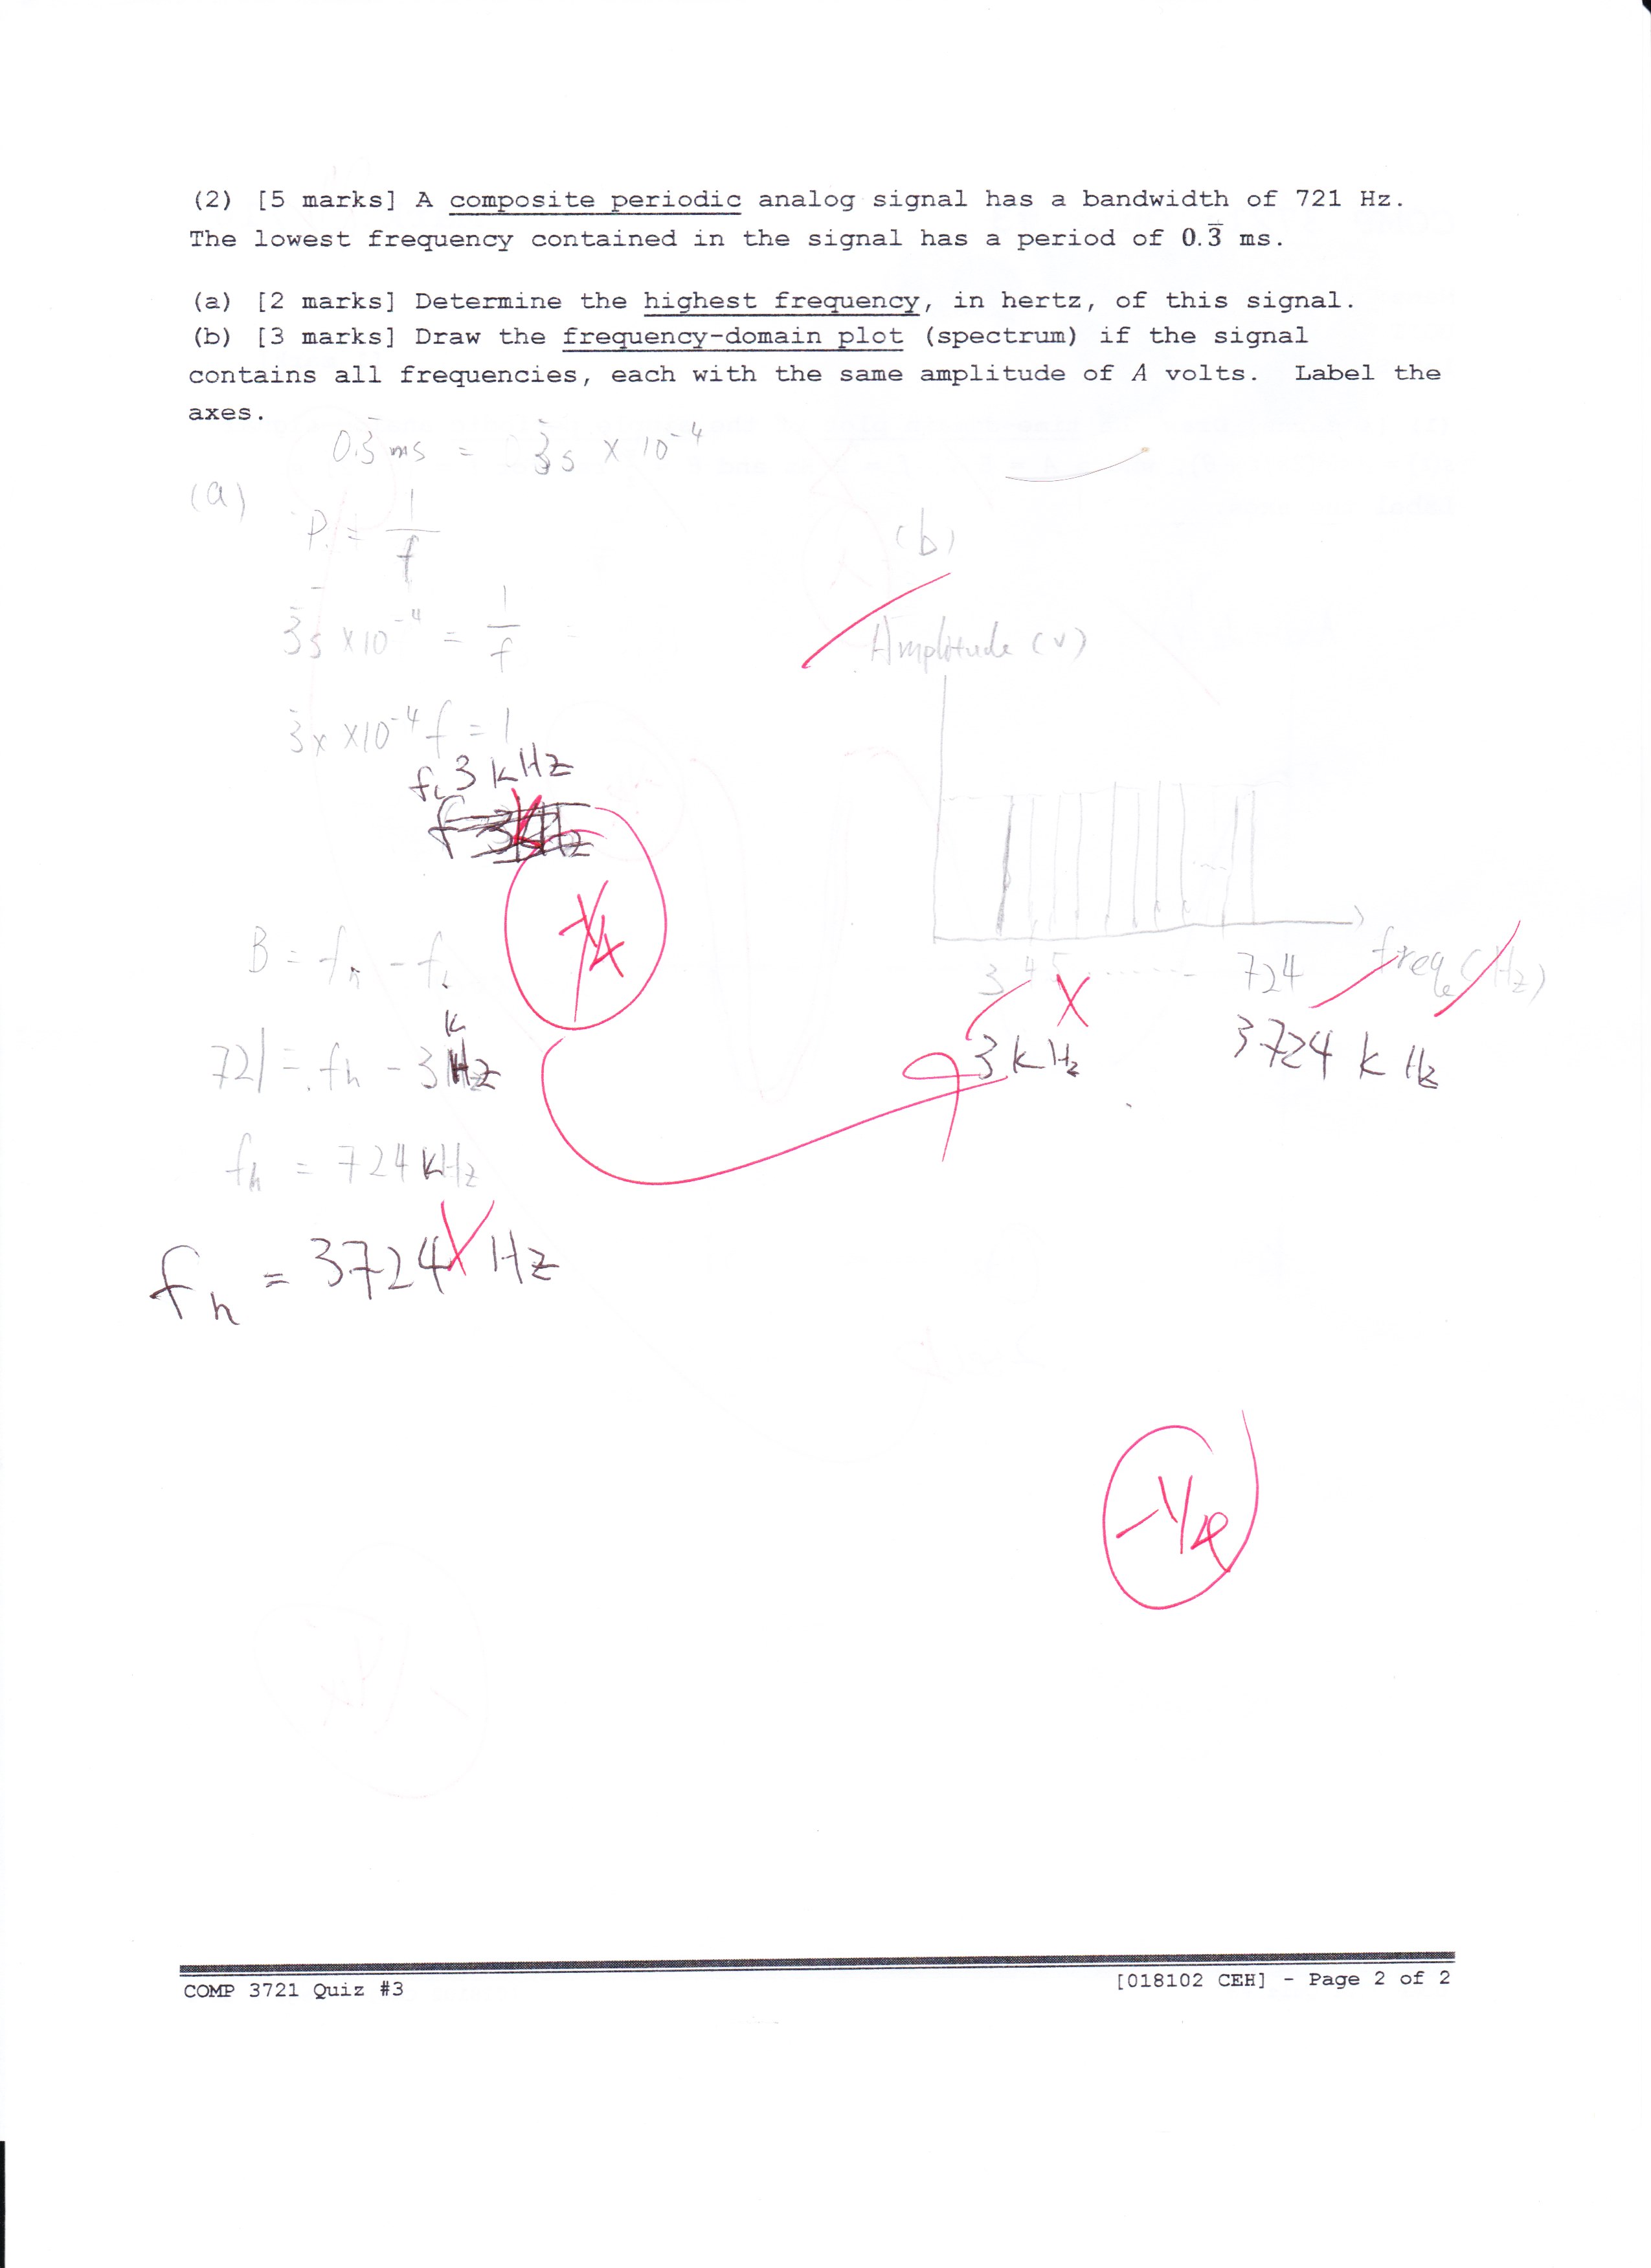 (2) [5 marks] A composite periodic analog signal has a bandwidth of 721 Hz.
The lowest frequency contained in the signal has a period of 0.3̅ ms.
(a) [2 marks] Determine the highest frequency, in hertz, of this signal.
(b) [3 marks] Draw the frequency-domain plot (spectrum) if the signal
contains all frequencies, each with the same amplitude of A volts. Label the
axes.
0.3̅ ms = 3̅s × 10⁻⁴
(a)
P = 1/f
3̅s × 10⁻⁴ = 1/f
3̅x ×10⁻⁴ f = 1
fL 3 kHz
B = fh - fL
721 = fh - 3 kHz
fh = 724 kHz
fh = 3724 Hz
(b)
Amplitude (v)
3 4 5 ....... - 724 freq (Hz)
3 kHz 3724 kHz
-1/4
COMP 3721 Quiz #3
[018102 CEH] - Page 2 of 2